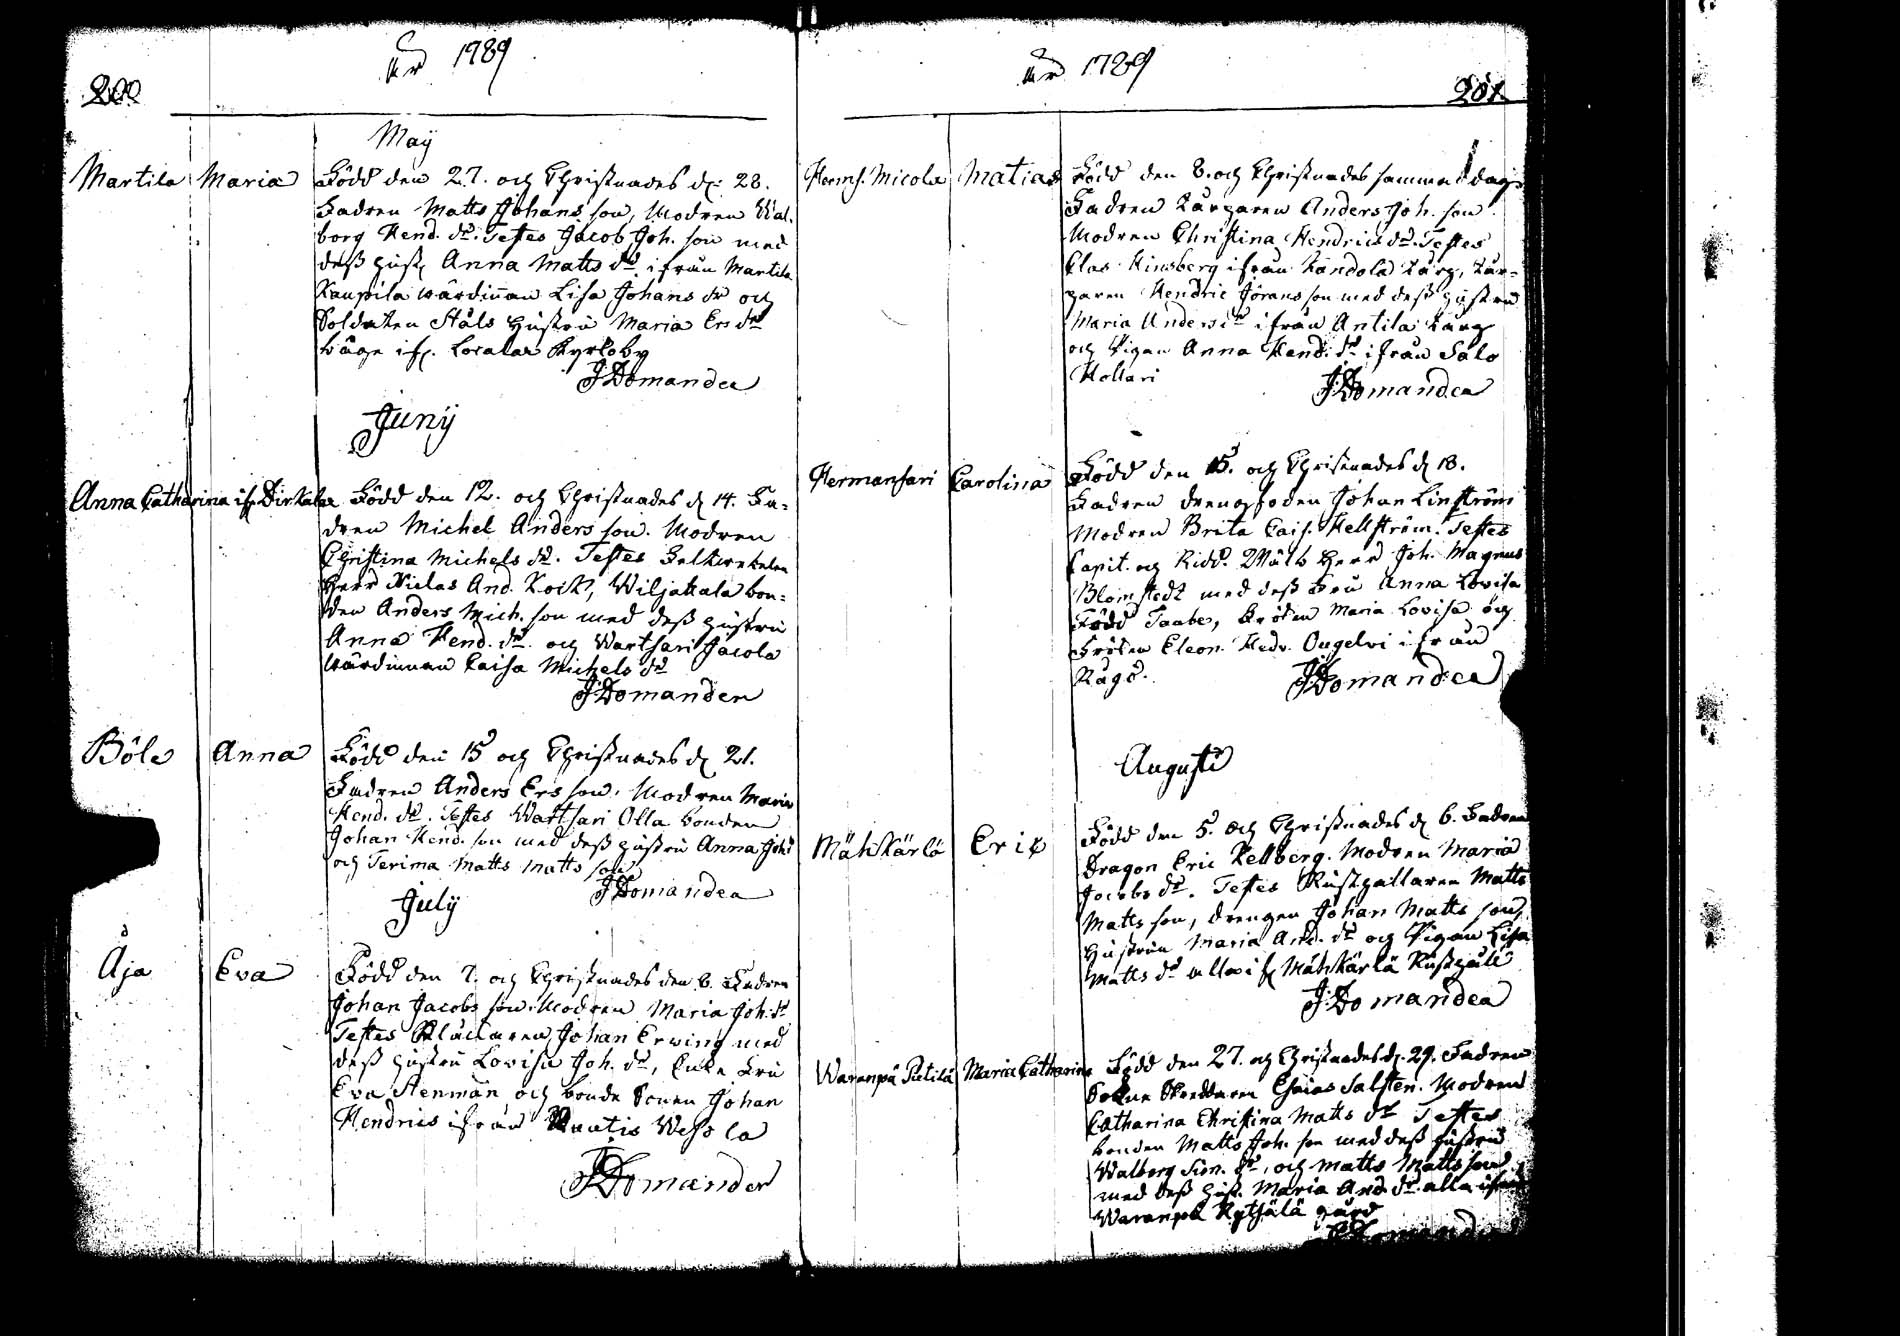 År 1789
200
May
Martila Maria Född den 27. och Christnades d. 28.
Fadren Matts Johans son, Modren Wal-
borg Hend. dr. Testes Jacob Joh. son med
dess hust. Anna Matts dr. ifrån Martila
Kaupila wärdinnan Lisa Johans dr och
Soldaten Ståls hustru Maria Ers dr
Kyrkoby
J Domander
Juny
Anna Catharina if. Dirkala Född den 12. och Christnades d. 14. Fa-
dren Michel Anders son. Modren
Christina Michels dr. Testes
Herr Niclas And. Kock, Wiljakala bon-
den Anders Mich. son med dess hustru
Anna Hend. dr. och Wartsari Jacola
wärdinnan Caisa Michels dr
J Domander
Böle Anna Född den 15 och Christnades d. 21.
Fadren Anders Ers son. Modren Maria
Hend. dr. Testes Wartsari Olla bonden
Johan Hend. son med dess hustru Anna Joh. dr
och Terima Matts Matts son
J Domander
July
Åja Eva Född den 7. och Christnades den 8. Fadren
Johan Jacobs son. Modren Maria Joh. dr
Testes Klåckaren Johan Erving med
dess hustru Lovisa Joh. dr, Enke Fru
Eva Stenman och bonde Sonen Johan
Hendrics ifrån
J Domander
År 1789
201.
Herms. Micola Matias Född den 8. och Christnades samma dag.
Fadren Torparen Anders Joh. son
Modren Christina Hendrics dr. Testes
Clas Hinsberg ifrån Kandola Torp, Tor-
paren Hendric Jörans son med dess hustru
Maria Anders dr ifrån Antila Torp
och Pigan Anna Hend. dr ifrån Salo
Hollari
J Domander
Hermansari Carolina Född den 15. och Christnades d. 18.
Fadren Johan Linström
Modren Brita Cais. Hellström. Testes
Capit. och Ridd. Wälb. Herr Joh. Magnus
Blomstedt med dess Fru Anna Lovisa
Född Taube, Fröken Maria Lovisa och
Fröken Eleon. Hedv. ifrån
Rågö.
J Domander
Augusti
Mähkärlä Eric Född den 5. och Christnades d. 6. Fadren
Dragon Eric Kellberg. Modren Maria
Jacobs dr. Testes Rusthållaren Matts
Matts son, drengen Johan Matts son,
Hustrun Maria And. dr och Pigan Lisa
Matts dr alla if. Mähkärlä Rusthåll
J Domander
Waranpä Putila Maria Catharina Född den 27. och Christnades d. 29. Fadren
Sockne Skreddaren Esaias Salsten. Modren
Catharina Christina Matts dr Testes
bonden Matts Joh. son med dess hustru
Walborg Sim. dr, och Matts Matts son
med dess hust. Maria And. dr. alla ifrån
Waranpä gård
J Domander